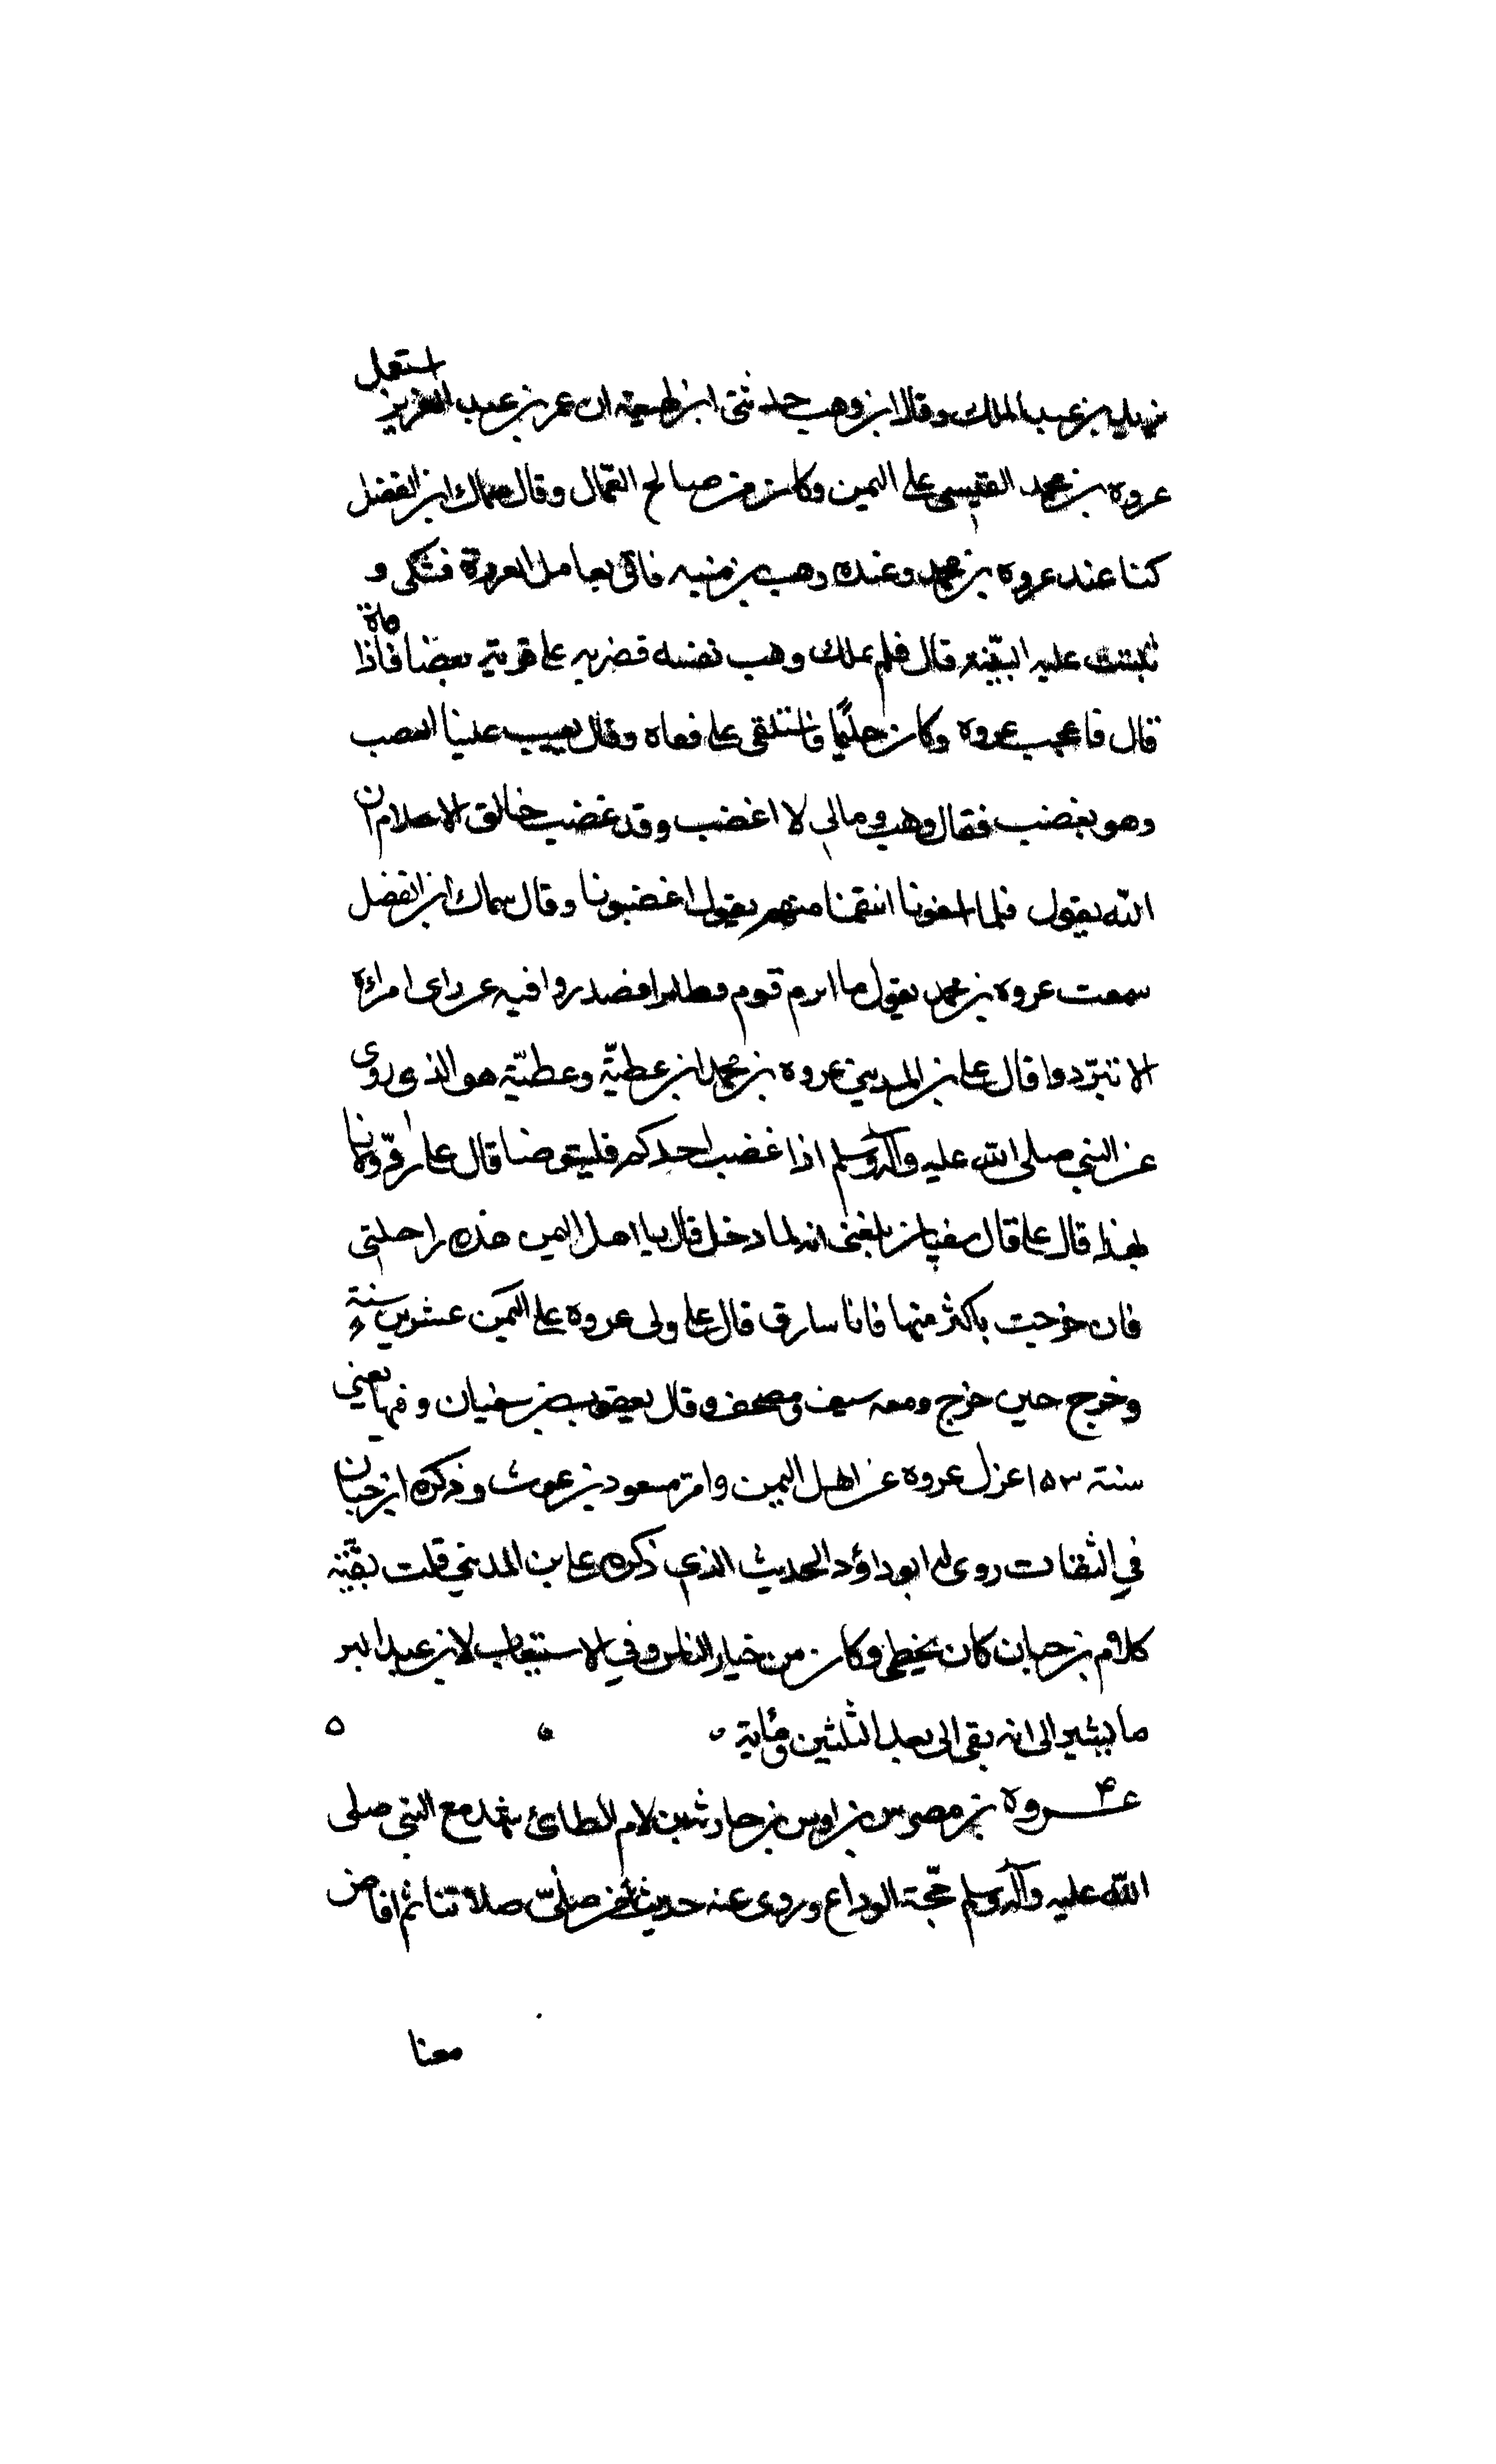 يزيد بن عبد الملك وقال ابن وهب حدثني ابن لهيعة ان عمر بن عبد العزيز استعمل
عروه بن محمد القيسي على اليمن وكان من صالح العمال وقال سماك ابن الفضل
كنا عند عروه بن محمد وعنده وهب بن منبه فاتى بعامل لعروة فشكى و
ثبتت عليه البينة قال فلم يملك وهب نفسه فضربه على قرنه بعصا فاذا
قال فاعجب عروه وكان حليما فاستلقى على قفاه وقال يعيب علينا الغضب
وهو يغضب فقال وهب ومالي لا اغضب وقد غضب خالق الاحلام ان
الله يقول فلما اسفونا انتقمنا منهم يقول اغضبونا وقال سماك ابن الفضل
سمعت عروه بن محمد يقول ما ابرم قوم قط امرا فصدروا فيه عن راى امراة
الا تبرّدوا قال على بن المديني عروه بن محمد ابن عطيّة وعطيّة هو الذي روى
عن النبي صلى الله عليه وآله وسلم اذا غضب احدكم فليتوضا قال على
بهذا قال على قال سفيان بلغني انه لما دخل قال يا اهل اليمن هذه راحلتي
فان خرجت باكثر منها فانا سارق قال على ولى عروه على اليمن عشرين سنة
وخرج حين خرج ومعه سيف ومصحف وقال يعقوب بن سفيان وفيها يعني
سنة ١٥٣ عزل عروه عن اهل اليمن وامر مسعود بن عوث وذكره ابن حبان
في الثقات روى له ابو داؤد الحديث الذي ذكره على بن المديني قلت بقيّة
كلام بن حبان كان يخطئ وكان من خيار الناس وفي الاستيعاب لابن عبد البر
ما يشير الى انه بقى الى بعد الثلثين ومأية
۴ عـــروه بن مضرس بن اوس بن حارثة بن لام الطائي شهد مع النبي صلى
الله عليه وآله وسلم حجّة الوداع وروى عنه حديث من صلّى صلاتنا ثم افاض
معنا